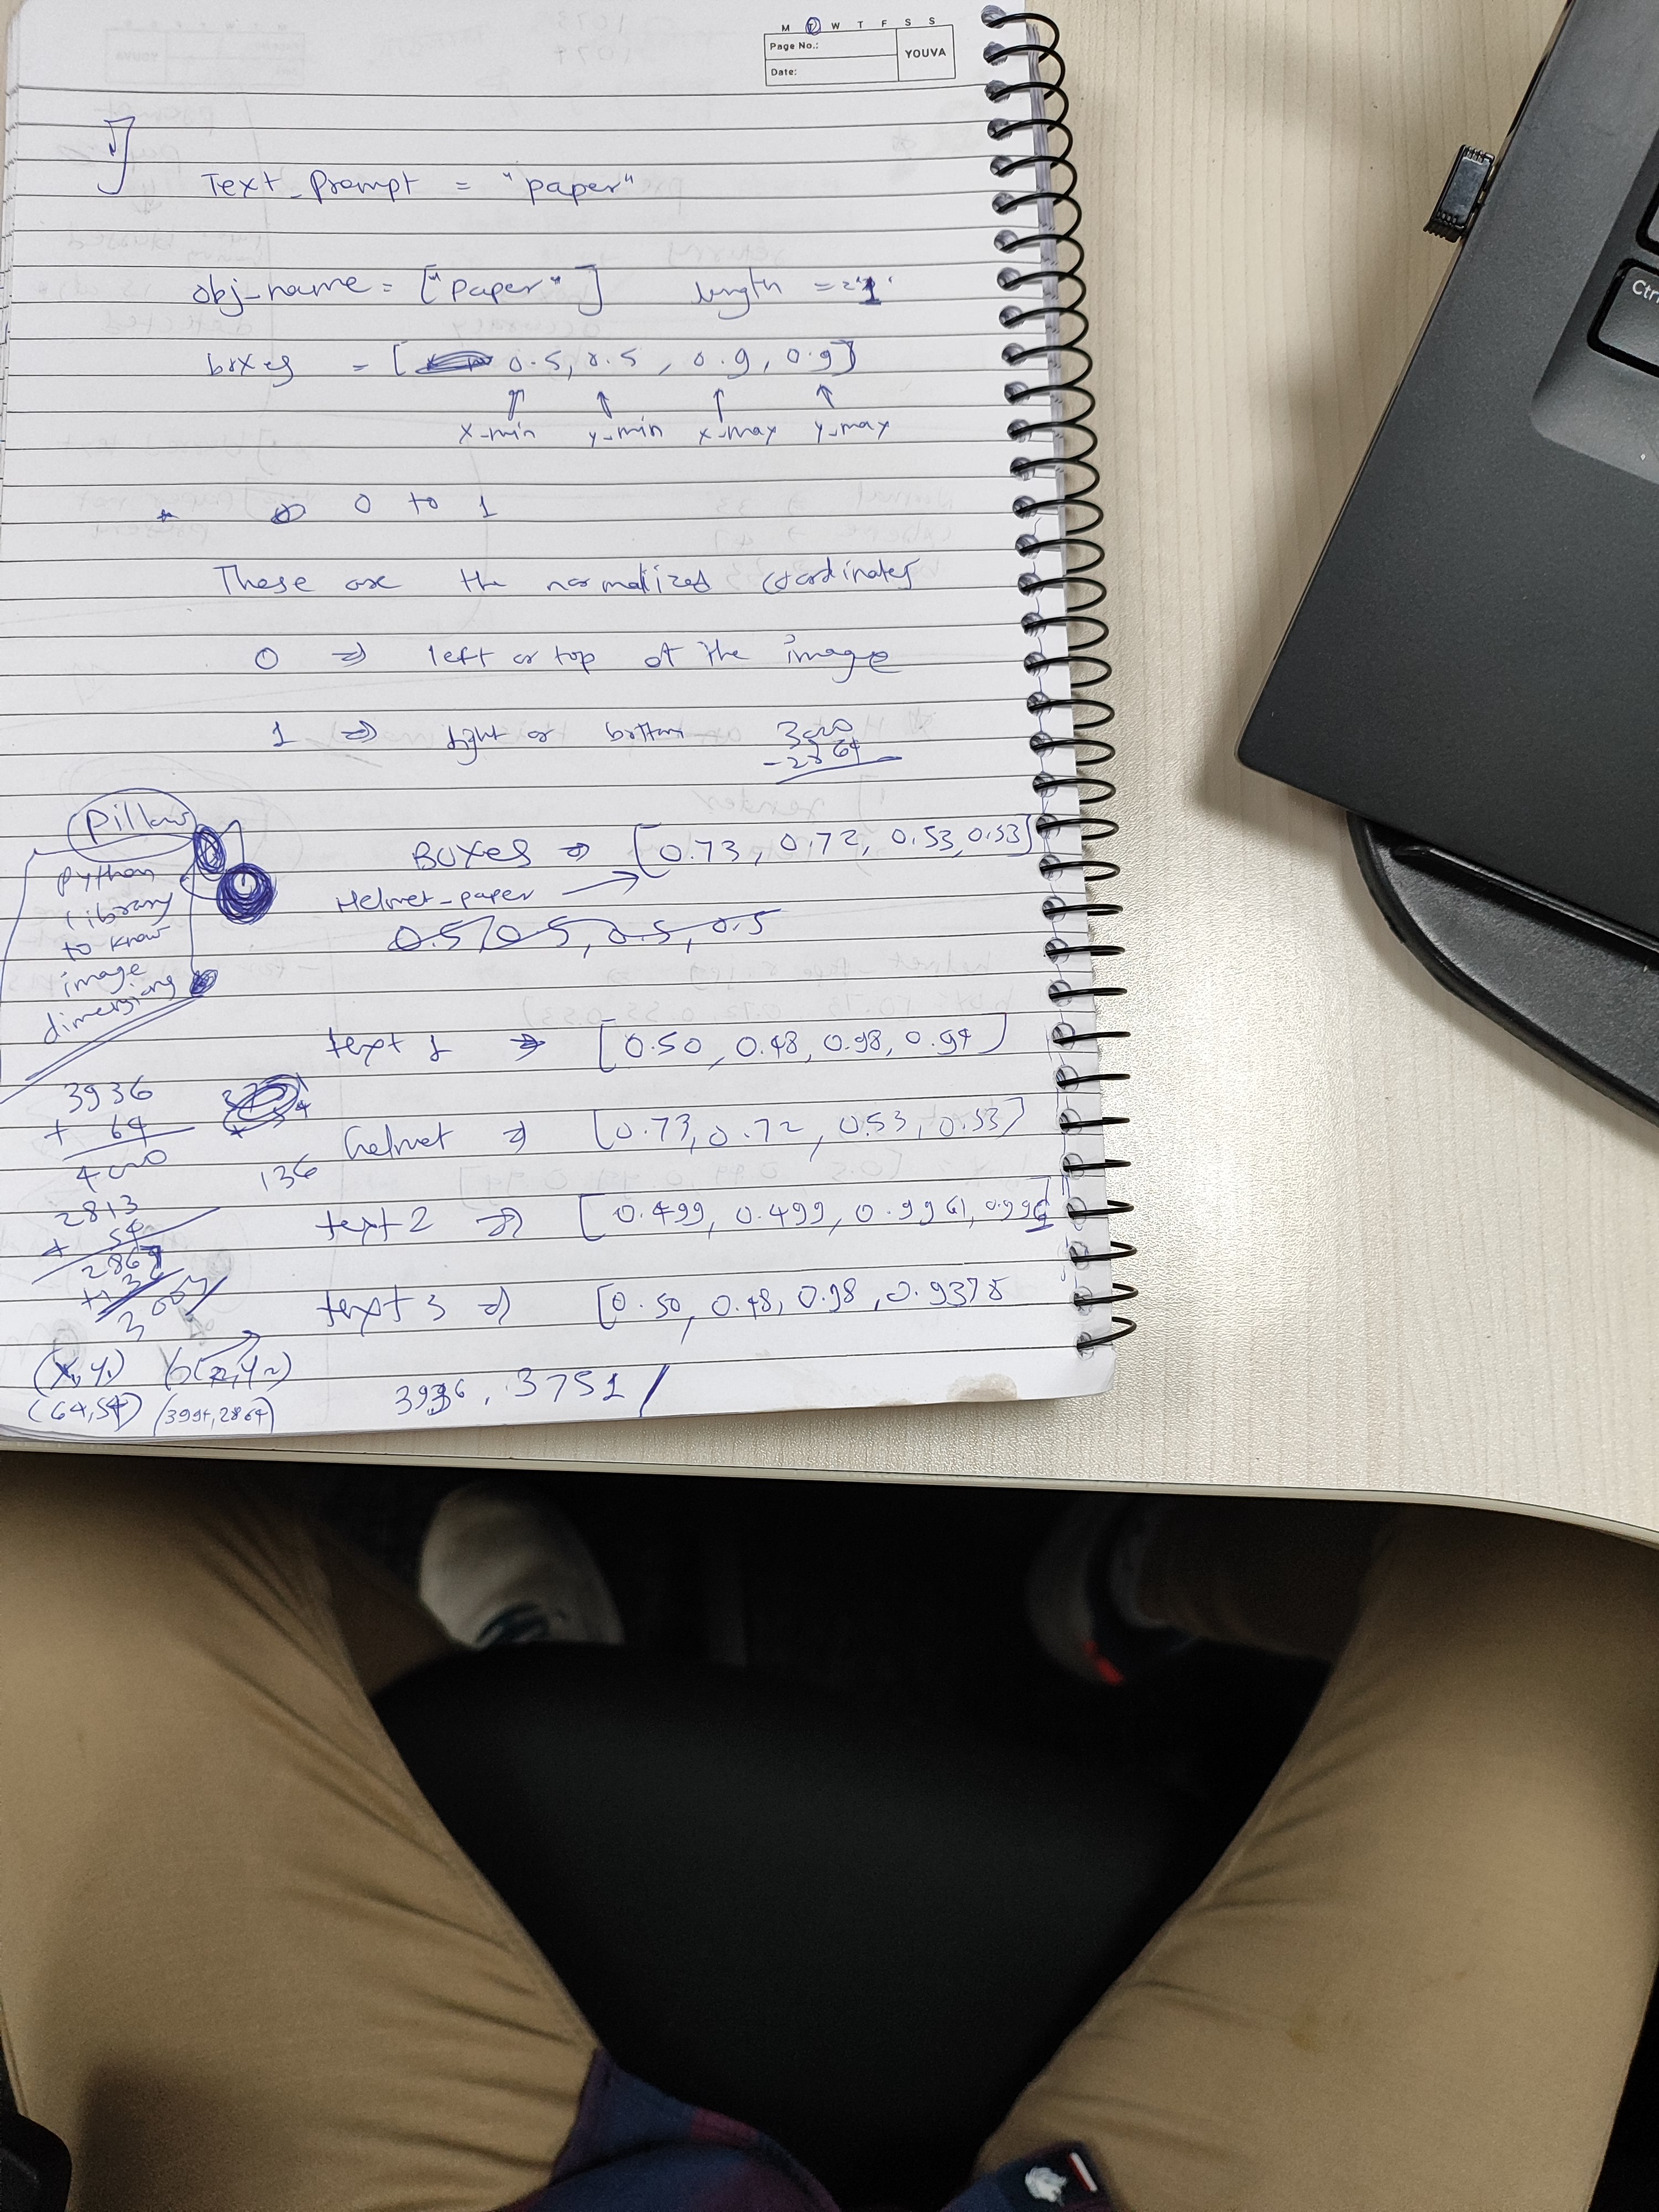 M T W T F S S
Page No.:
YOUVA
Date:
Text_Prompt = "paper"
obj_name = ["paper"] length = "1"
boxes = [ 0.5, 0.5, 0.9, 0.9]
x_min y_min x_max y_max
0 to 1
These are the normalized coordinates
0 ⇒ left or top of the image
1 ⇒ right or bottom
3000
- 2864
Pillow
python
library
to know
image
dimensions
BOXES ⇒ [0.73, 0.72, 0.53, 0.53]
Helmet_paper →
0.5, 0.5, 0.5, 0.5
text 1 ⇒ [0.50, 0.48, 0.98, 0.94]
3936
+ 64
4000
helmet ⇒ [0.73, 0.72, 0.53, 0.53]
136
2813
+ 54
2867
text 2 ⇒ [0.499, 0.499, 0.9961, 0.996]
text 3 ⇒ [0.50, 0.48, 0.98, 0.9375
(x1, y1)
(64, 54) (3994, 2864)
3936, 3751
Ctr